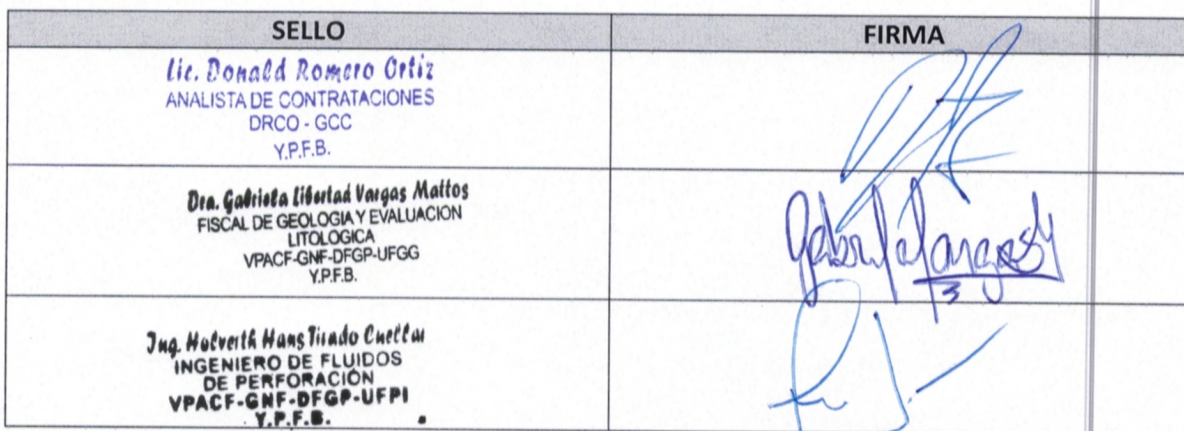 SELLO
FIRMA
Lic. Donald Romero Ortiz
ANALISTA DE CONTRATACIONES
DRCO - GCC
Y.P.F.B.
Dra. Gabriela Libertad Vargas Mattos
FISCAL DE GEOLOGIA Y EVALUACION
LITOLOGICA
VPACF-GNF-DFGP-UFGG
Y.P.F.B.
Gabriela Vargas M
Ing. Holverth Hans Tirado Cuellar
INGENIERO DE FLUIDOS
DE PERFORACIÓN
VPACF-GNF-DFGP-UFPI
Y.P.F.B.